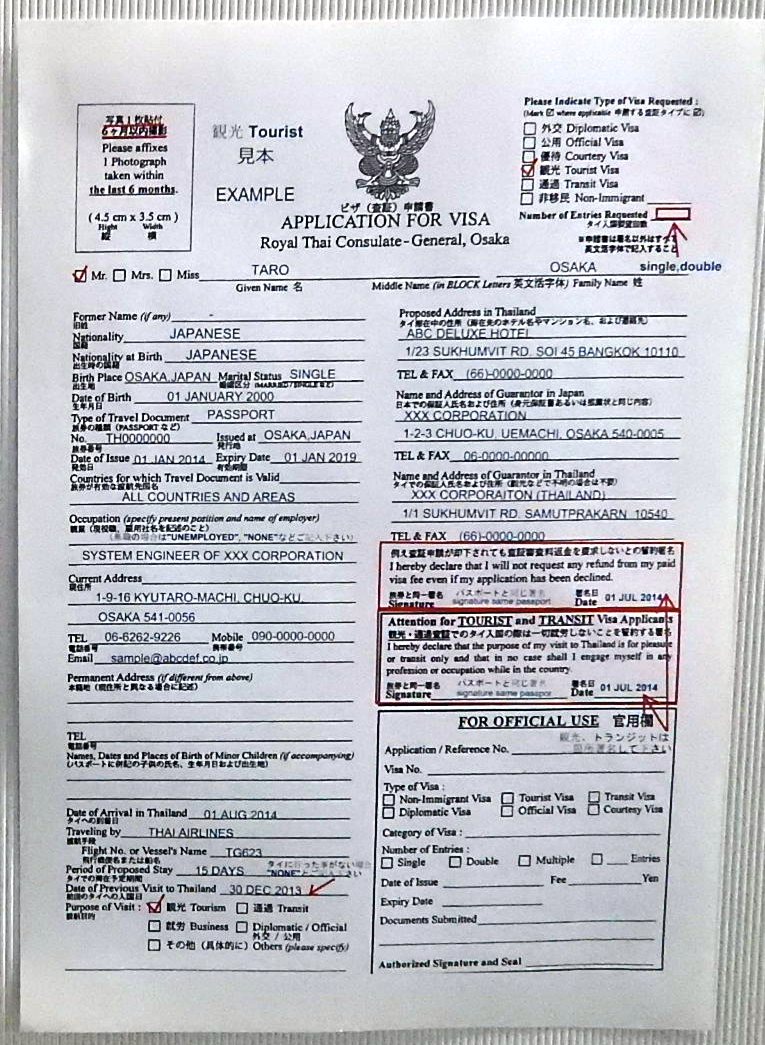 写真1枚貼付
6ヶ月以内撮影
Please affixes
1 Photograph
taken within
the last 6 months.
( 4.5 cm x 3.5 cm )
Hight Width
縦 横
観光 Tourist
見本
EXAMPLE
ビザ（査証）申請書
APPLICATION FOR VISA
Royal Thai Consulate-General, Osaka
Please Indicate Type of Visa Requested :
(Mark ☑ where applicable 申請する査証タイプに ☑)
外交 Diplomatic Visa
公用 Official Visa
優待 Courtery Visa
観光 Tourist Visa
通過 Transit Visa
非移民 Non-Immigrant
Number of Entries Requested
タイ入国希望回数
※申請書は署名以外はすべて
英文活字体で記入すること
single,double
Mr. Mrs. Miss TARO OSAKA
Given Name 名 Middle Name (in BLOCK Letters 英文活字体) Family Name 姓
Former Name (if any) -
旧姓
Nationality JAPANESE
国籍
Nationality at Birth JAPANESE
出生時の国籍
Birth Place OSAKA,JAPAN Marital Status SINGLE
出生地 婚姻区分 (MARRIED / SINGLE など)
Date of Birth 01 JANUARY 2000
生年月日
Type of Travel Document PASSPORT
旅券の種類 (PASSPORT など)
No. TH0000000 Issued at OSAKA,JAPAN
旅券番号 発行地
Date of Issue 01 JAN 2014 Expiry Date 01 JAN 2019
発効日 有効期限
Countries for which Travel Document is Valid
旅券が有効な渡航先国名
ALL COUNTRIES AND AREAS
Occupation (specify present position and name of employer)
職業（現役職、雇用社名を記述のこと）
(無職の場合は"UNEMPLOYED", "NONE"などご記入下さい)
SYSTEM ENGINEER OF XXX CORPORATION
Current Address
現住所
1-9-16 KYUTARO-MACHI, CHUO-KU,
OSAKA 541-0056
TEL 06-6262-9226 Mobile 090-0000-0000
電話番号 携帯番号
Email sample@abcdef.co.jp
Permanent Address (if different from above)
本籍地（現住所と異なる場合に記述）
TEL
電話番号
Names, Dates and Places of Birth of Minor Children (if accompanying)
(パスポートに併記の子供の氏名、生年月日および出生地)
Date of Arrival in Thailand 01 AUG 2014
タイへの到着日
Traveling by THAI AIRLINES
渡航手段
Flight No. or Vessel's Name TG623
飛行機便名または船名
タイに行った事がない場合
Period of Proposed Stay 15 DAYS "NONE"とご記入下さい
タイでの滞在予定期間
Date of Previous Visit to Thailand 30 DEC 2013
前回のタイへの入国日
Purpose of Visit : 観光 Tourism 通過 Transit
渡航目的
就労 Business Diplomatic / Official
外交 / 公用
その他（具体的に）Others (please specify)
Proposed Address in Thailand
タイ滞在中の住所（滞在先のホテル名やマンション名、および連絡先）
ABC DELUXE HOTEL
1/23 SUKHUMVIT RD. SOI 45 BANGKOK 10110
TEL & FAX (66)-0000-0000
Name and Address of Guarantor in Japan
日本での保証人氏名および住所（身元保証書あるいは推薦状と同じ内容）
XXX CORPORATION
1-2-3 CHUO-KU, UEMACHI, OSAKA 540-0005
TEL & FAX 06-0000-00000
Name and Address of Guarantor in Thailand
タイでの保証人氏名および住所（観光などで不明の場合は不要）
XXX CORPORAITON (THAILAND)
1/1 SUKHUMVIT RD. SAMUTPRAKARN 10540
TEL & FAX (66)-0000-0000
例え査証申請が却下されても査証審査料返金を要求しないとの誓約署名
I hereby declare that I will not request any refund from my paid
visa fee even if my application has been declined.
旅券と同一署名 パスポートと同じ署名 署名日
Signature signature same passport Date 01 JUL 2014
Attention for TOURIST and TRANSIT Visa Applicants
観光・通過査証でのタイ入国の際は一切就労しないことを誓約する署名
I hereby declare that the purpose of my visit to Thailand is for pleasure
or transit only and that in no case shall I engage myself in any
profession or occupation while in the country.
旅券と同一署名 パスポートと同じ署名 署名日
Signature signature same passpor Date 01 JUL 2014
FOR OFFICIAL USE 官用欄
観光、トランジットは
Application / Reference No. 箇所署名して下さい
Visa No.
Type of Visa :
Non-Immigrant Visa Tourist Visa Transit Visa
Diplomatic Visa Official Visa Courtesy Visa
Category of Visa :
Number of Entries :
Single Double Multiple Entries
Date of Issue Fee Yen
Expiry Date
Documents Submitted
Authorized Signature and Seal